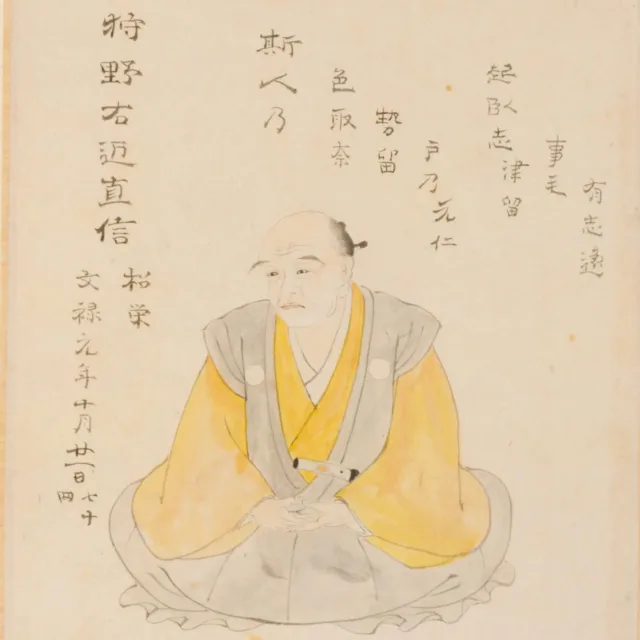 狩野右近直信
松栄
文禄元年十月廿一日
七十
四
斯人乃
色取奈
勢留
戸乃元仁
起臥志津留
事毛
有志遠